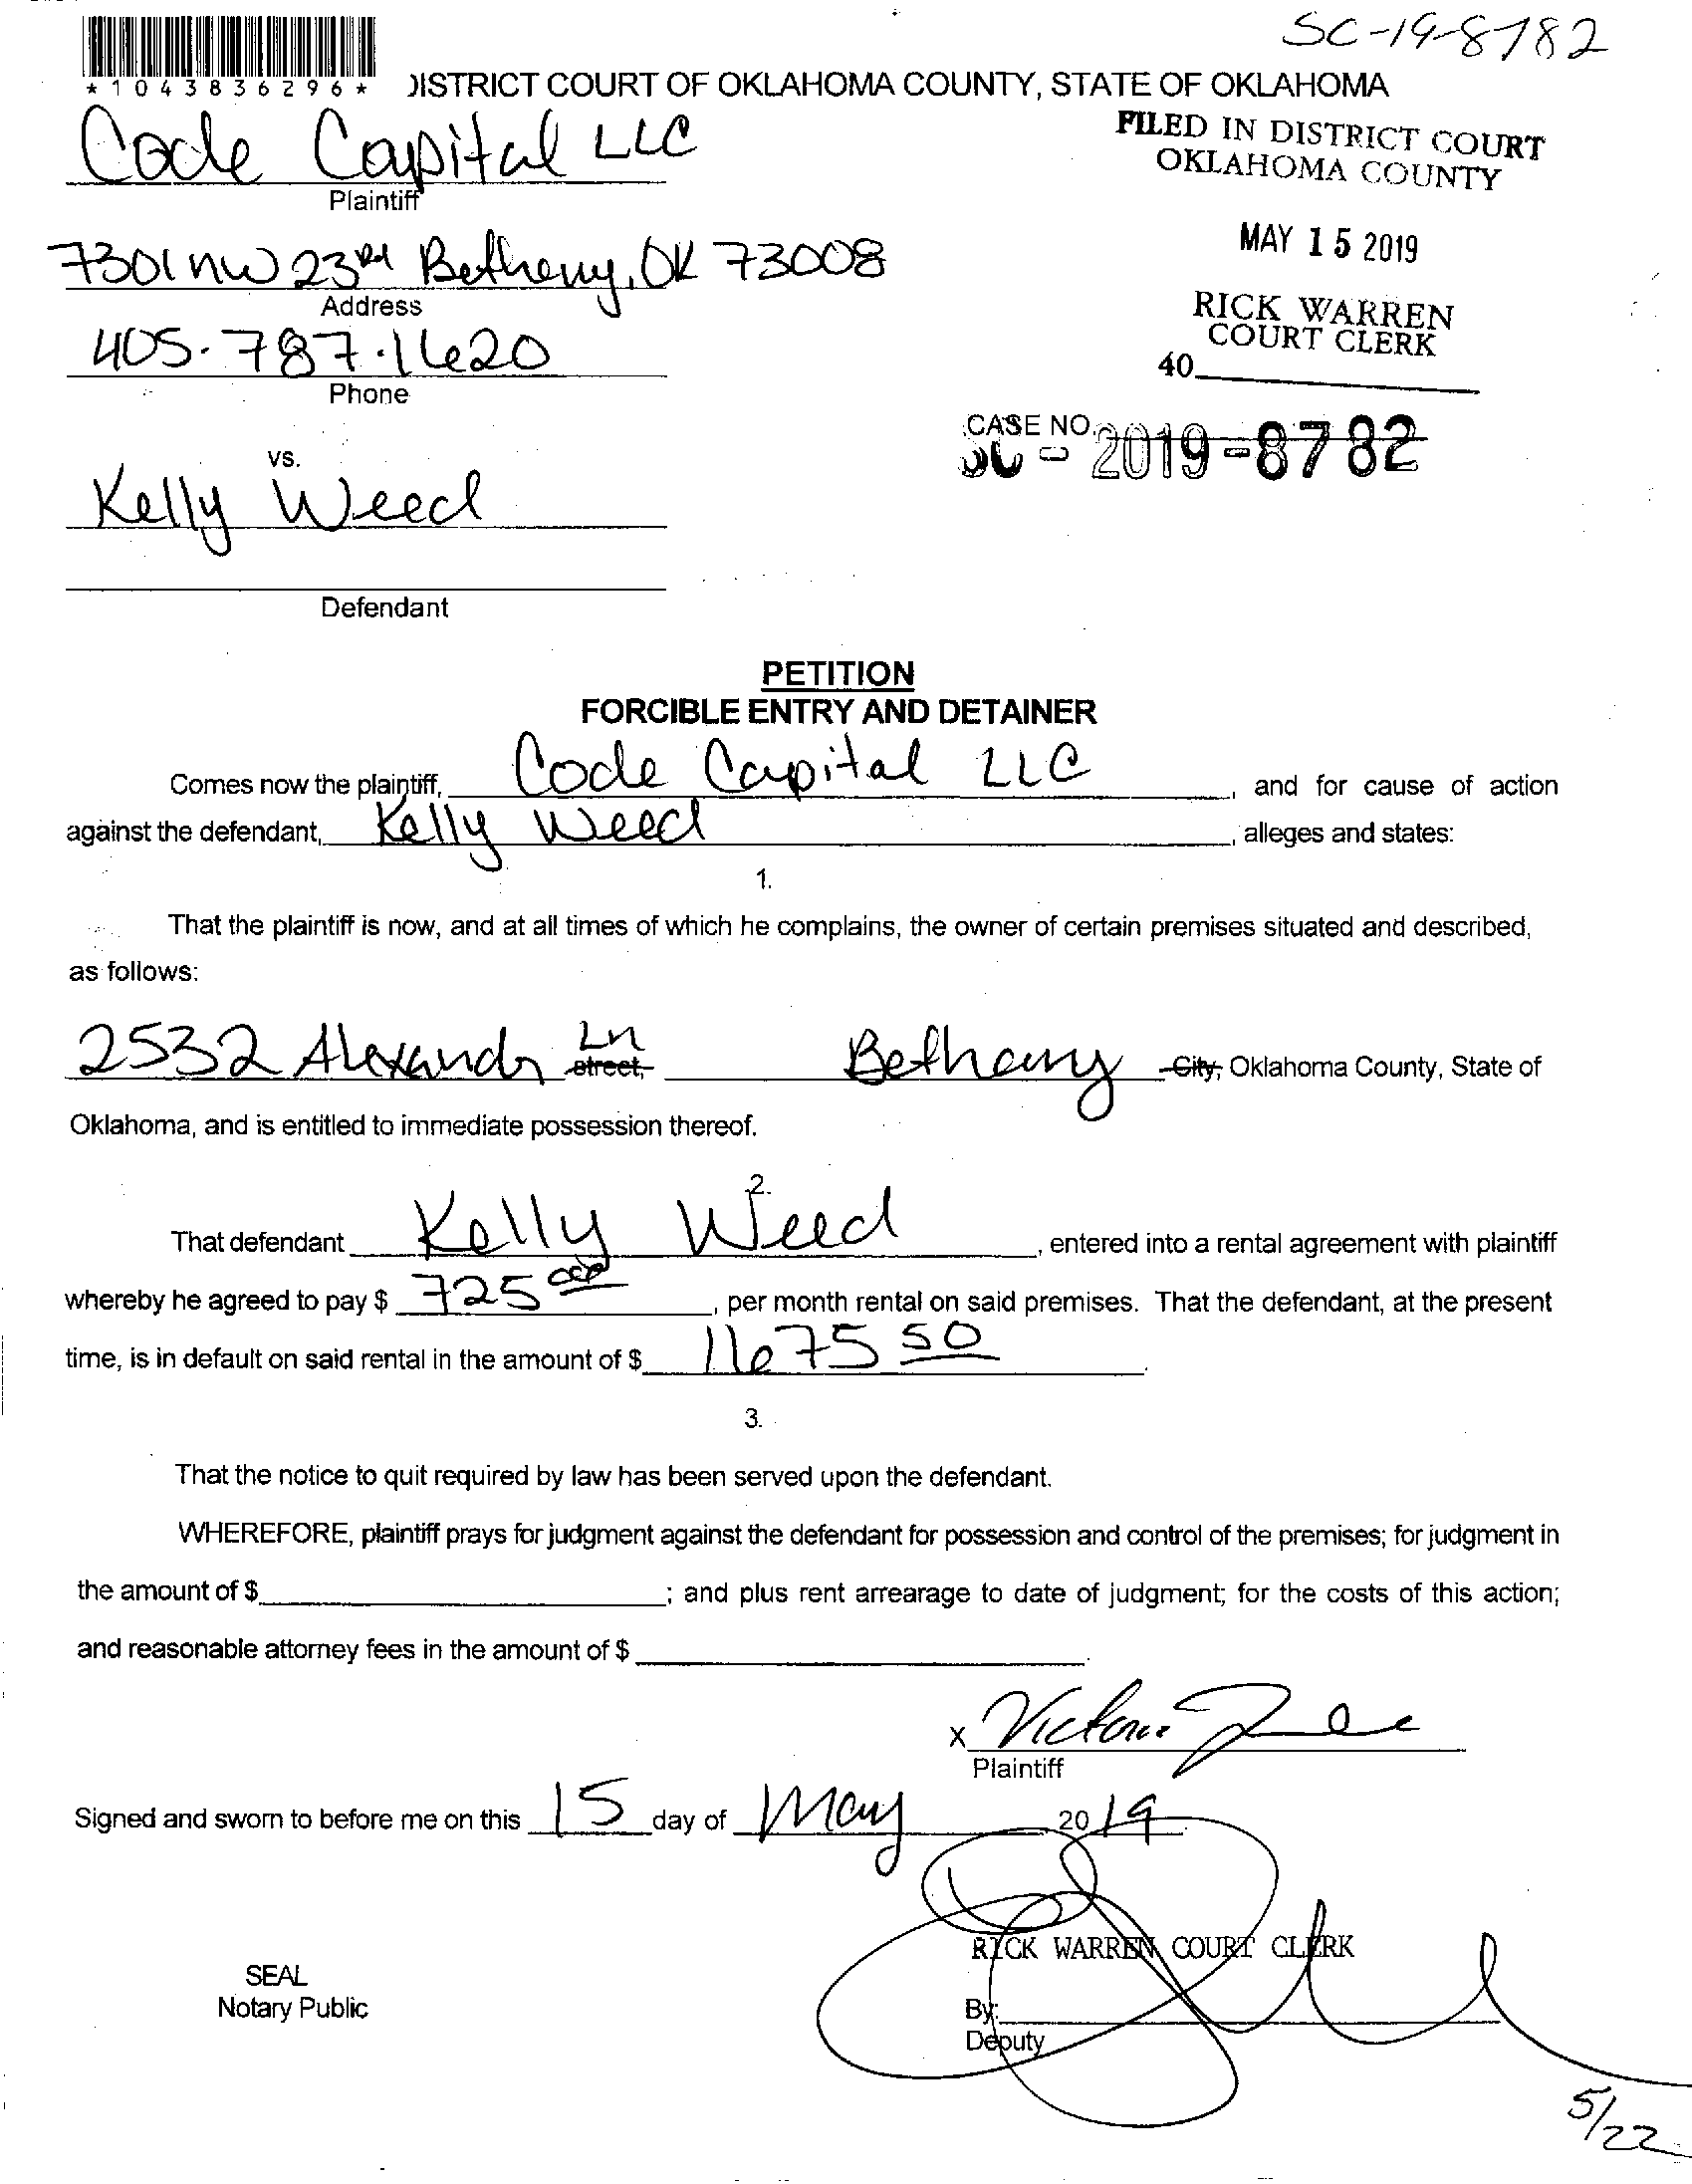 SC-19-8782
*1043836296*
DISTRICT COURT OF OKLAHOMA COUNTY, STATE OF OKLAHOMA
Code Capital LLC
Plaintiff
FILED IN DISTRICT COURT
OKLAHOMA COUNTY
7301 NW 23rd Bethany, OK 73008
Address
MAY 15 2019
405.787.1620
Phone
RICK WARREN
COURT CLERK
40
CASE NO.
SC - 2019-8782
vs.
Kelly Weed
Defendant
PETITION
FORCIBLE ENTRY AND DETAINER
Comes now the plaintiff, Code Capital LLC, and for cause of action
against the defendant, Kelly Weed, alleges and states:
1.
That the plaintiff is now, and at all times of which he complains, the owner of certain premises situated and described,
as follows:
2532 Alexandr Ln street, Bethany City, Oklahoma County, State of
Oklahoma, and is entitled to immediate possession thereof.
2.
That defendant Kelly Weed, entered into a rental agreement with plaintiff
whereby he agreed to pay $ 725, per month rental on said premises. That the defendant, at the present
time, is in default on said rental in the amount of $ 1675 50.
3.
That the notice to quit required by law has been served upon the defendant.
WHEREFORE, plaintiff prays for judgment against the defendant for possession and control of the premises; for judgment in
the amount of $ ; and plus rent arrearage to date of judgment; for the costs of this action;
and reasonable attorney fees in the amount of $ .
x
Plaintiff
Signed and sworn to before me on this 15 day of May 2019
RICK WARREN COURT CLERK
SEAL
Notary Public
By:
Deputy
5/22